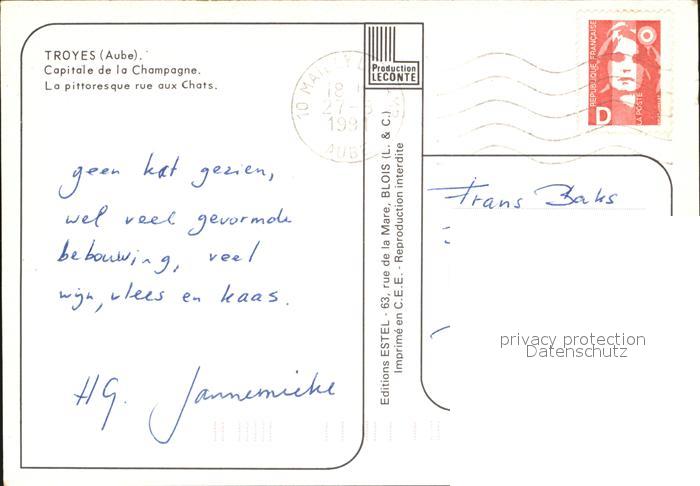 TROYES (Aube).
Capitale de la Champagne.
La pittoresque rue aux Chats.
Production
LECONTE
10 MAILLY
18 H
27-8
1991
AUBE
RÉPUBLIQUE FRANÇAISE
LA POSTE
D
geen kat gezien,
wel veel gevormde
bebouwing, veel
wijn, vlees en kaas.
HG. Jannemieke
Editions ESTEL - 63, rue de la Mare, BLOIS (L. & C.)
Imprimé en C.E.E. - Reproduction interdite
Frans Baks
privacy protection
Datenschutz